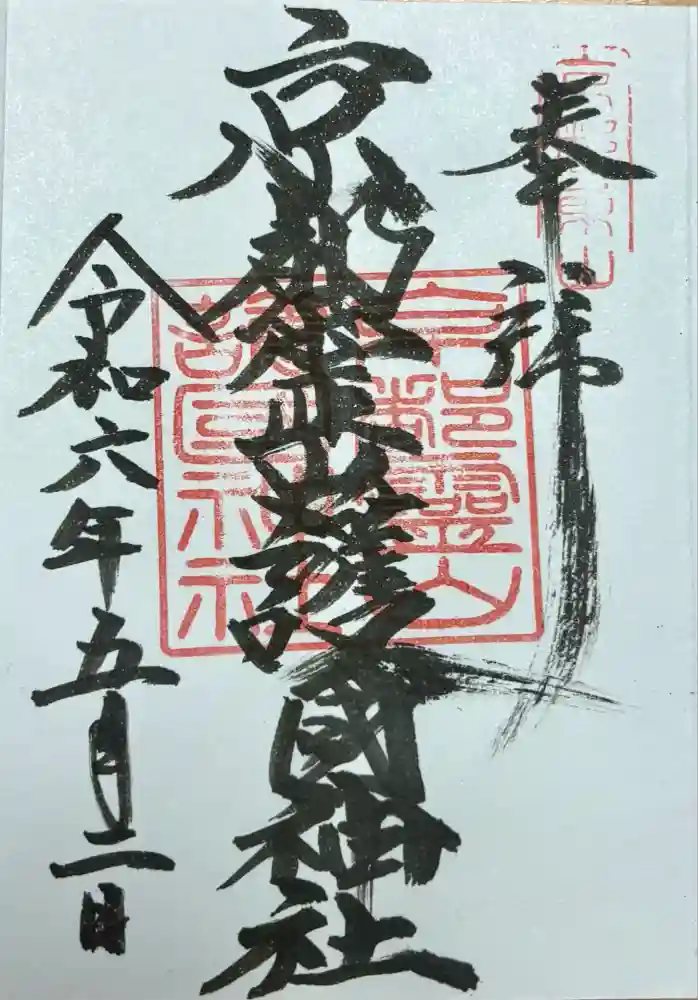 奉拝
京都霊山護國神社
令和六年五月二日
京都霊山護國神社